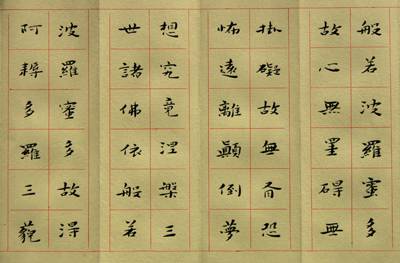 般若波羅蜜多
故心無罣碍無
掛礙故無有恐
怖遠離顛倒夢
想究竟涅槃三
世諸佛依般若
波羅蜜多故得
阿耨多羅三藐